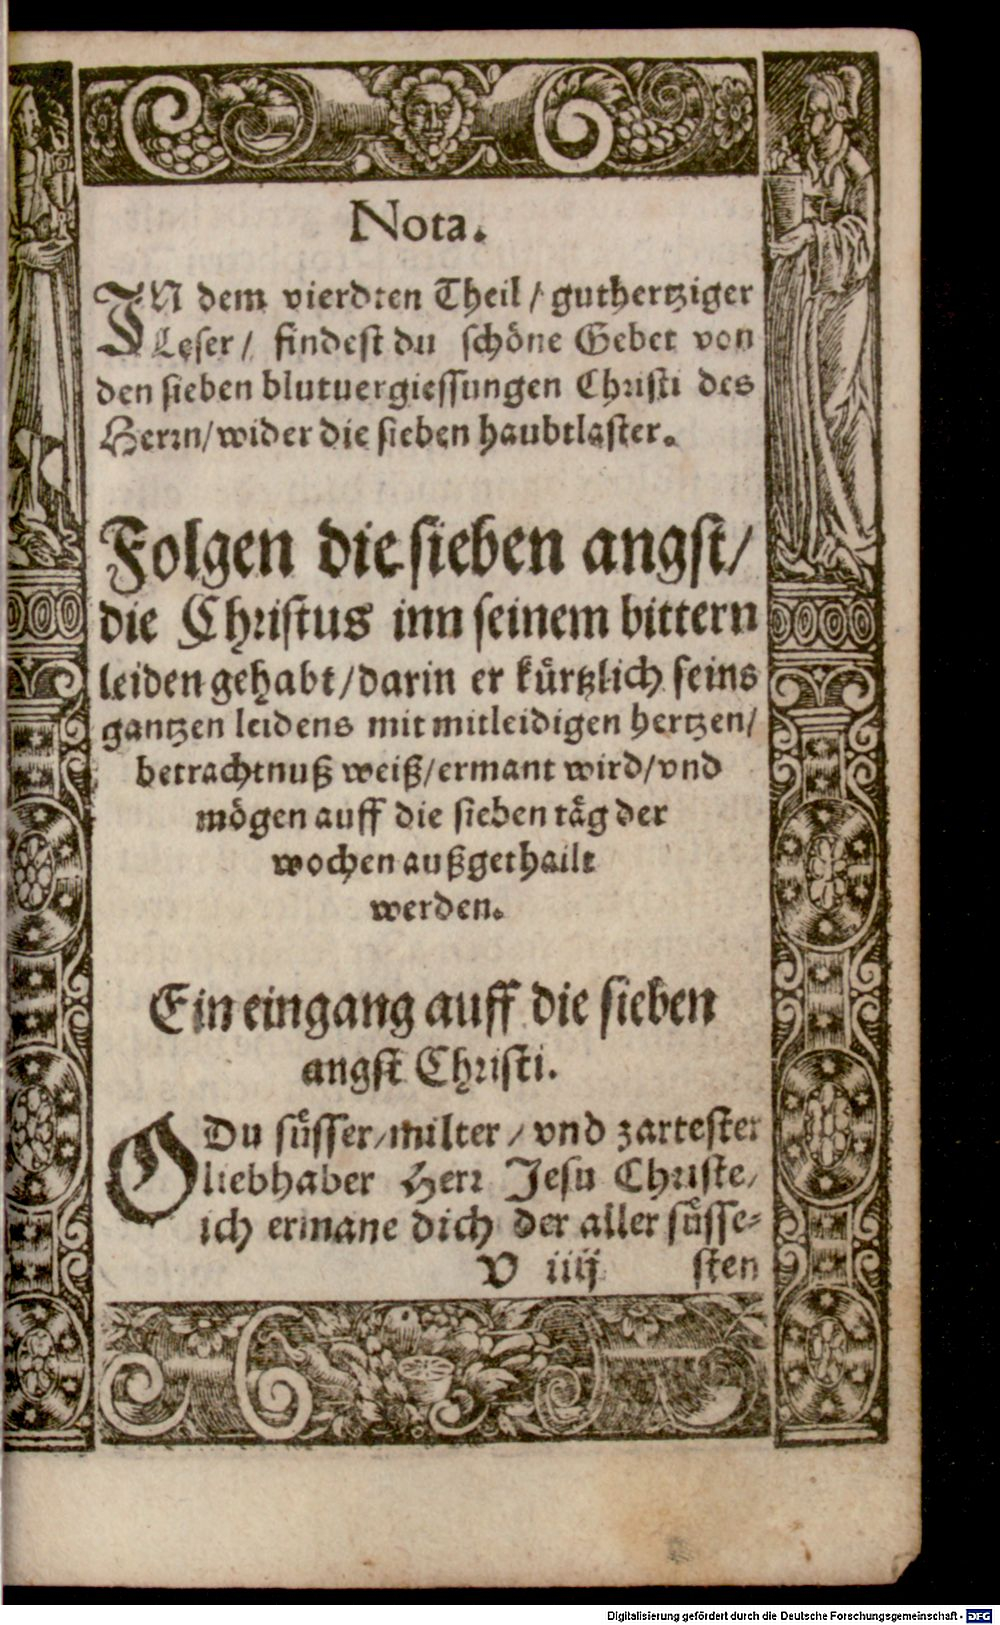 Nota.
IN dem vierdten Theil / guthertziger
Leser / findest du schöne Gebet von
den sieben blutuergiessungen Christi des
Herrn / wider die sieben haubtlaster.
Folgen die sieben angst /
die Christus inn seinem bittern
leiden gehabt / darin er kürtzlich seins
gantzen leidens mit mitleidigen hertzen /
betrachtnuß weiß / ermant wird / vnd
mögen auff die sieben täg der
wochen außgethailt
werden.
Ein eingang auff die sieben
angst Christi.
O Du süsser / milter / vnd zartester
liebhaber Herr Jesu Christe /
ich ermane dich der aller süsse-
V iiij sten
Digitalisierung gefördert durch die Deutsche Forschungsgemeinschaft - DFG